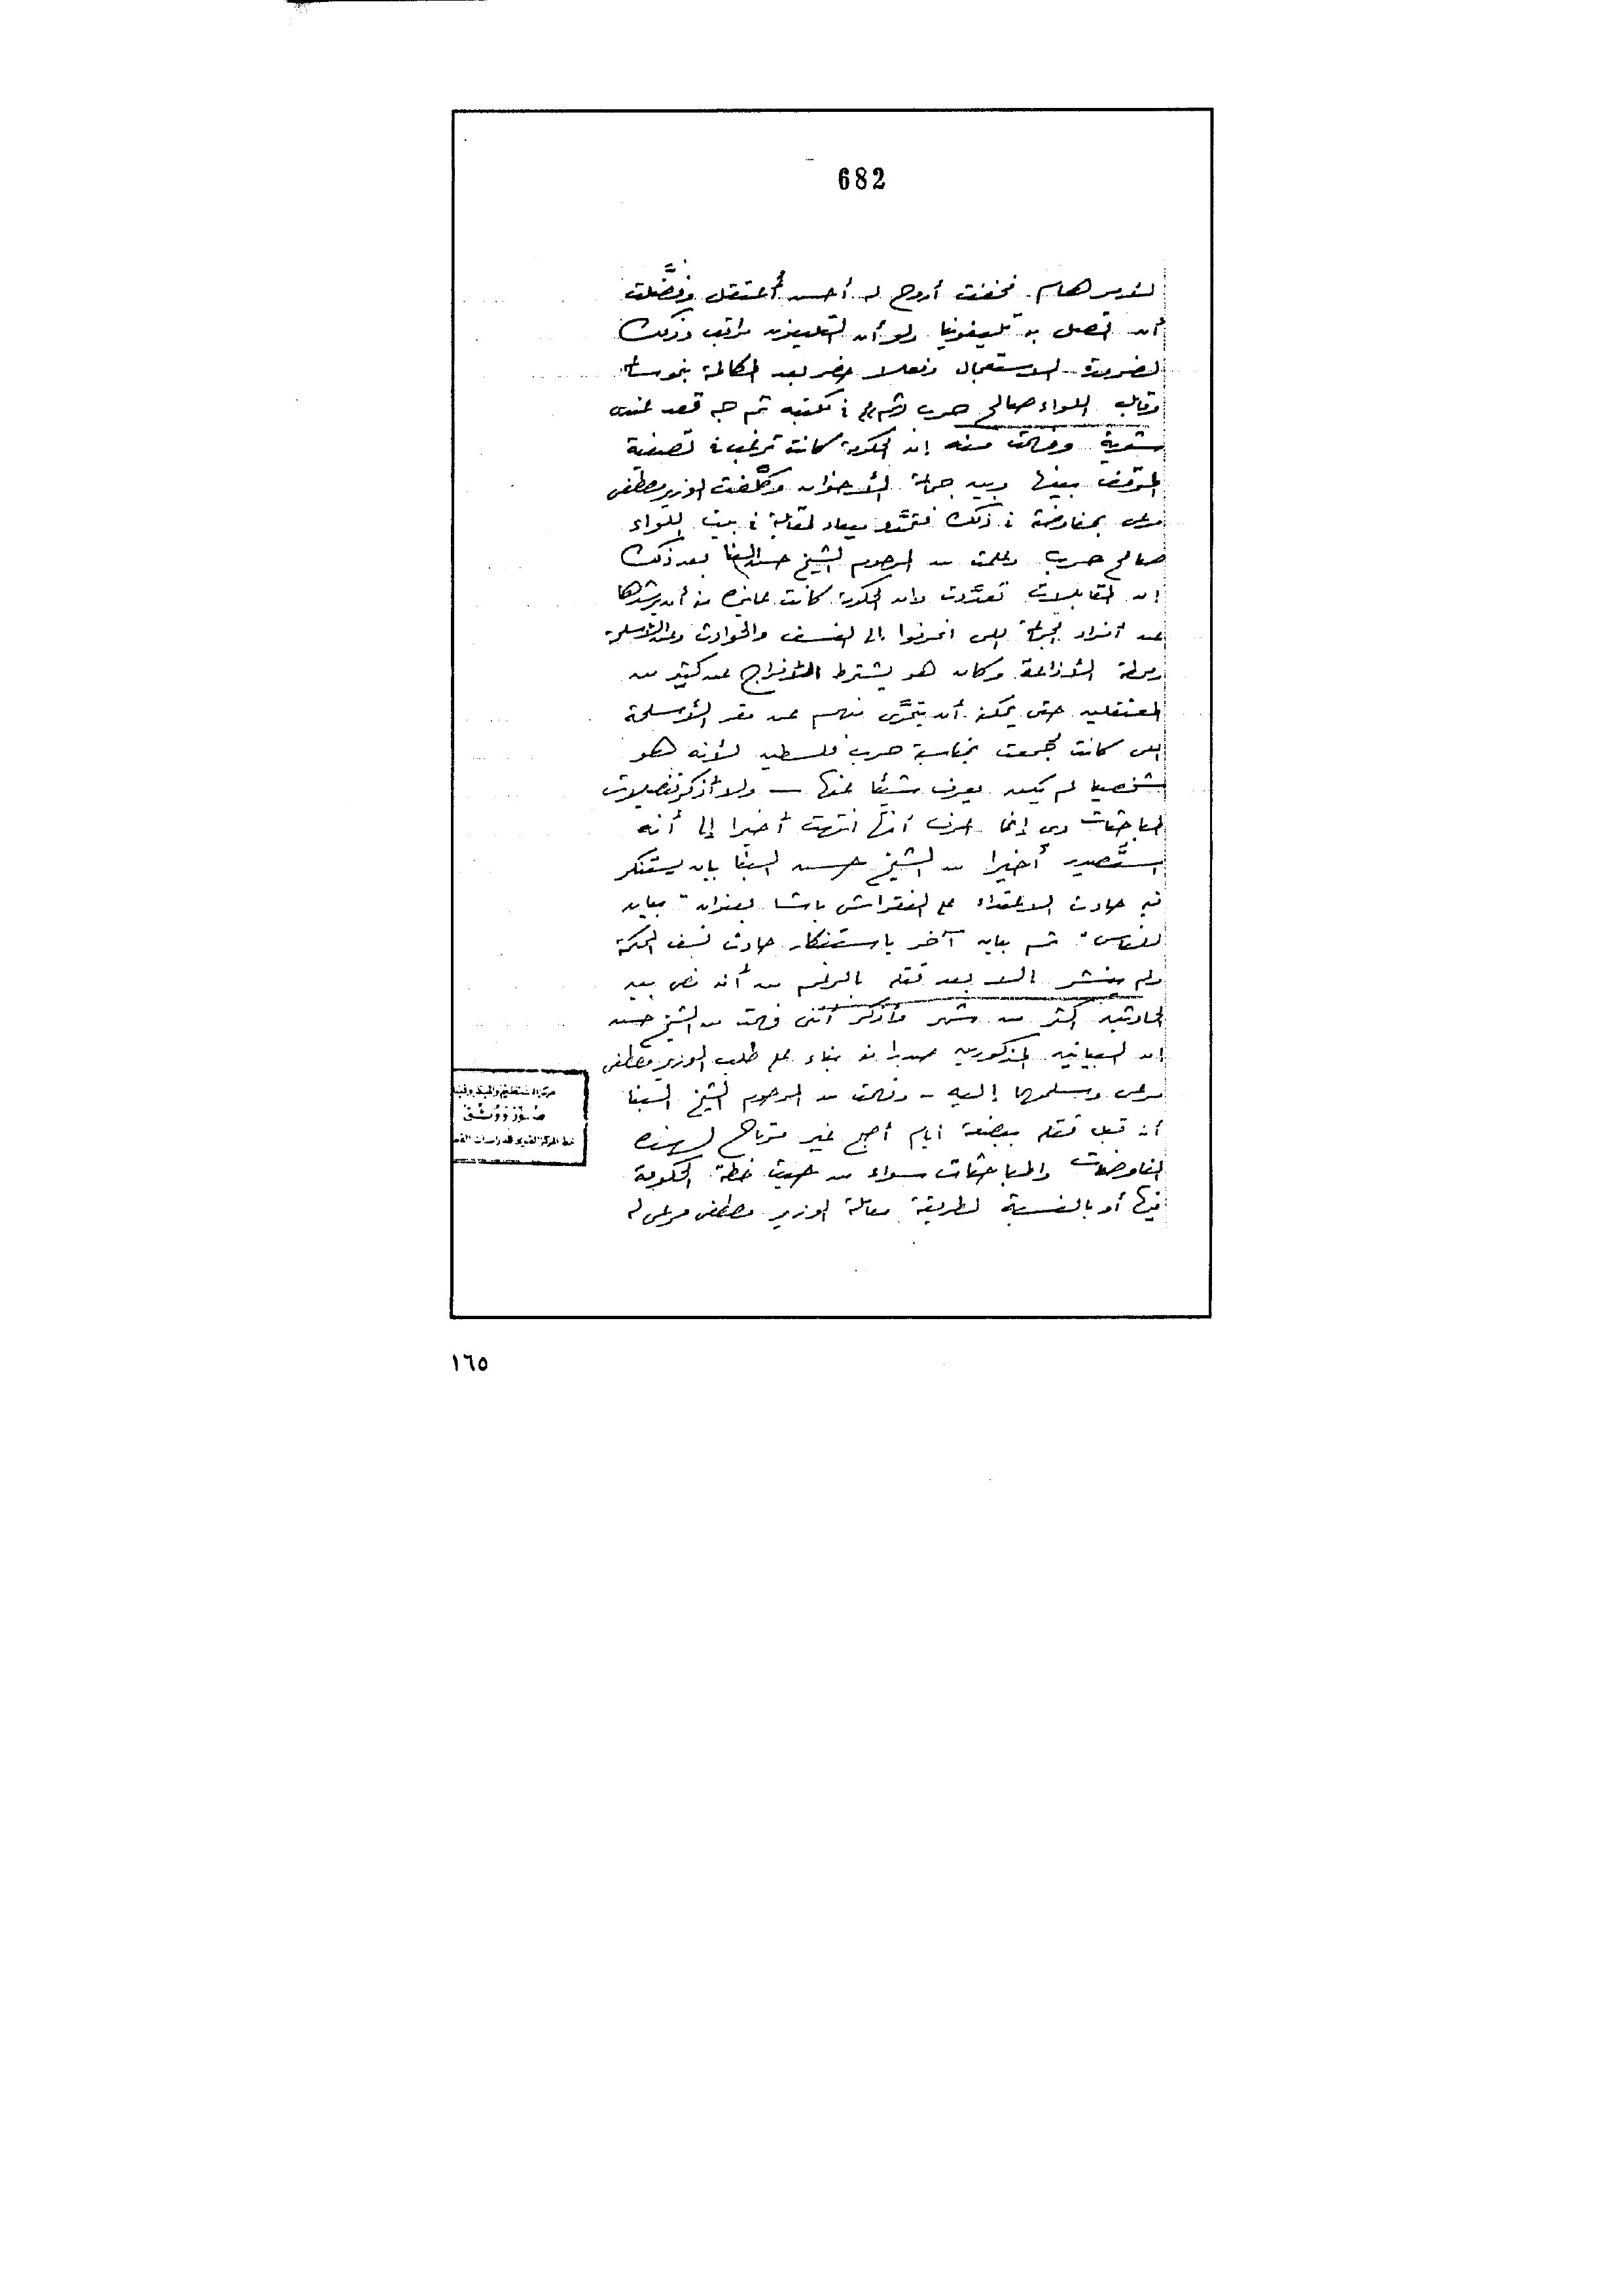 682
لأمر هام. فخفت أروح له أحسن أعتقل وفضَّلت
أن اتصل به تليفونيا ولو أن التليفون مراقب وذلك
لضرورة الاستعجال وفعلا حضر بعد المكالمة بنحو ساعة
وقابل اللواء صالح حرب باشا في مكتبه ثم جه قعد عندى
شوية وفهمت منه إن الحكومة كانت ترغب في تصفية
الموقف بينها وبين جماعة الأخوان وكلَّفت الوزير مصطفى
مرعى بمفاوضته في ذلك فتحدَّد ميعاد لمقابلته في بيت اللواء
صالح حرب وعلمت من المرحوم الشيخ حسن البنا بعد ذلك
إن المقابلات تعدَّدت وان الحكومة كانت عايزه منه أن يرشدها
عن أفراد الجماعة اللى انحرفوا إلى العنف والحوادث وعن الأسلحة
ومحطة الأذاعة وكان هو يشترط الأفراج عن كثير من
المعتقلين حتى يمكنه أن يتحرَّى منهم عن مقر الأسلحة
اللى كانت جُمعت بمناسبة حرب فلسطين لأنه هو
شخصيا لم يكن يعرف شيئا عنها – ولا أذكر تفصيلات
المباحثات دى إنما أعرف أنها انتهت أخيرا إلى أنه
استُصدر أخيرا من الشيخ حسن البنا بيان يستنكر
فيه حادث الاعتداء على النقراشى باشا بعنوان "بيان
للناس" ثم بيان آخر باستنكار حادث نسف المحكمة
ولم ينشر إلا بعد قتله بالرغم من أنه مضى بين
الحادثين أكثر من شهر وأذكر أننى فهمت من الشيخ حسن
ان البيانين المذكورين صدرا منه بناء على طلب الوزير مصطفى
مرعى وسلمهما إليه – وفهمت من المرحوم الشيخ البنا
أنه قبل قتله ببضعة أيام أصبح غير مرتاح لهذه
المفاوضات والمباحثات سواء من حيث خطة الحكومة
فيها أو بالنسبة لطريقة معاملة الوزير مصطفى مرعى له
صُوَرْ وَوُثَّقْ
١٦٥